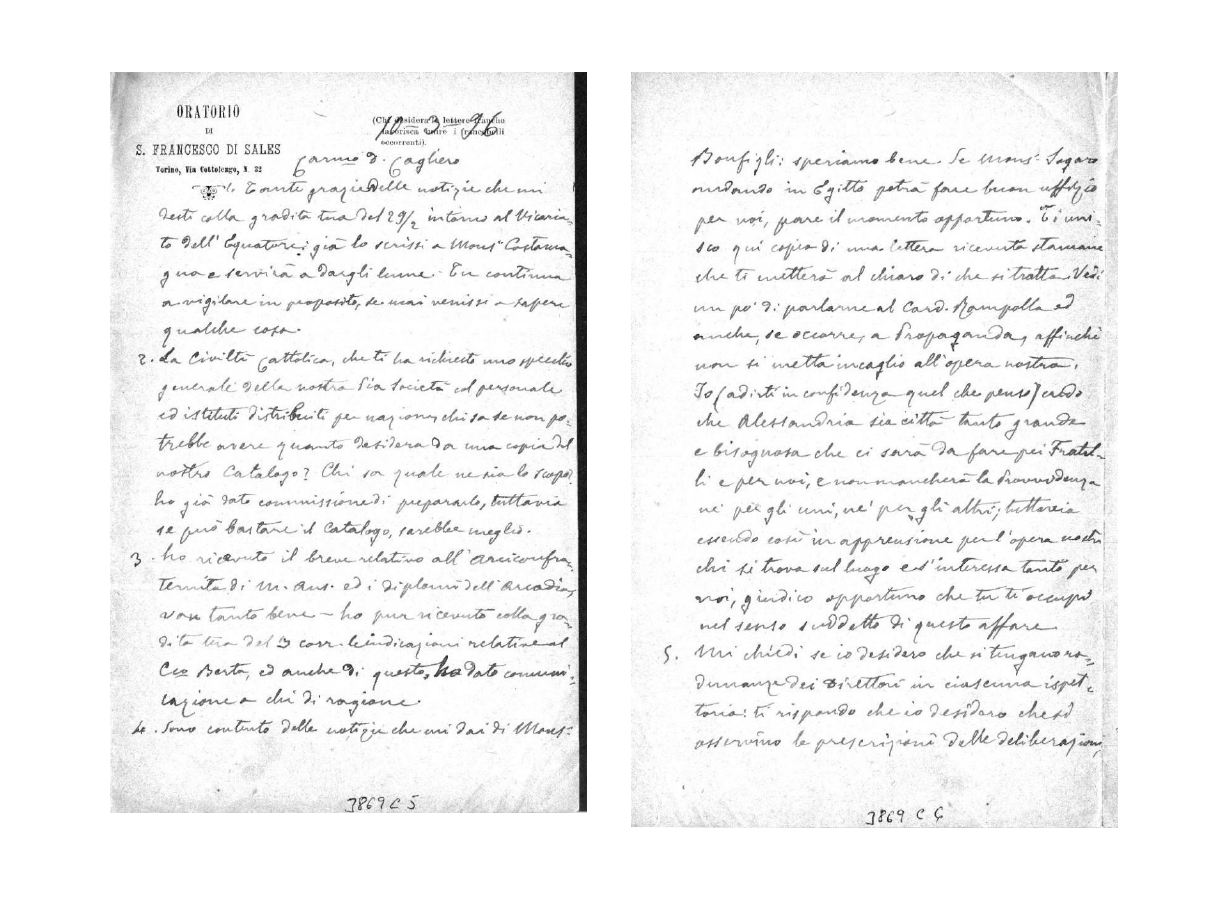 ORATORIO
DI
S. FRANCESCO DI SALES
Torino, Via Cottolengo, N. 32
(Chi desidera le lettere franche
favorisca unire i francobolli
occorrenti).
10-3-96
Carmo D. Cagliero
1. Tante grazie delle notizie che mi
desti colla gradita tua del 29/2 intorno al Vicaria-
to dell'Equatore; già lo scrissi a Monsr Costama
gna e servirà a dargli lume. Tu continua
a vigilare in proposito, se mai venissi a sapere
qualche cosa.
2. La Civiltà Cattolica, che ti ha richiesto uno specchio
generale della nostra Pia Società col personale
ed istituti distribuiti per nazione, chi sa se non po-
trebbe avere quanto desidera da una copia del
nostro Catalogo? Chi sa quale ne sia lo scopo?
ho già dato commissione di prepararlo, tuttavia
se può bastare il Catalogo, sarebbe meglio.
3. ho ricevuto il breve relativo all'Arciconfra-
ternita di M. Aus. ed i diplomi dell'Arcadia,
van tanto bene - ho pur ricevuto colla gra-
dita tua del 3 corr. le indicazioni relative al
Berto, ed anche di questo, ho dato comuni-
cazione a chi di ragione.
4. Sono contento delle notizie che mi dai di Monsr
3869 C 5
Bonfigli: speriamo bene. Se Monsr Sogaro
andando in Egitto potrà fare buon uffizio
per noi, pare il momento opportuno. Ti uni-
sco qui copia di una lettera ricevuta stamane
che ti metterà al chiaro di che si tratta. Vedi
un po' di parlarne al Card. Rampolla ed
anche, se occorre, a Propaganda, affinchè
non si metta incaglio all'opera nostra.
Io (a dirti in confidenza quel che penso) credo
che Alessandria sia città tanto grande
e bisognosa che ci sarà da fare pei Fratel-
li e per noi, e non mancherà la Provvidenza
nè per gli uni, nè per gli altri; tuttavia
essendo così in apprensione per l'opera nostra
chi si trova sul luogo e s'interessa tanto per
noi, giudico opportuno che tu ti occupi
nel senso suddetto di questo affare.
5. Mi chiedi se io desidero che si tengano ra-
dunanze dei Direttori in ciascuna ispet-
toria: ti rispondo che io desidero che si
osservino le prescrizioni delle deliberazioni,
3869 C 6